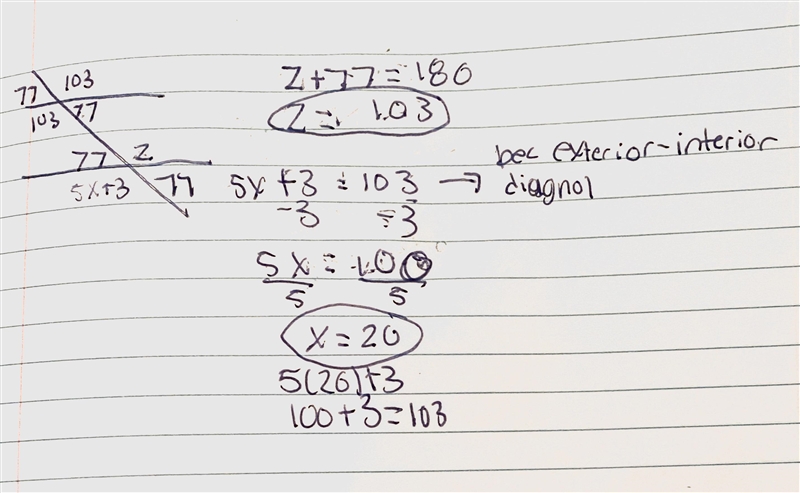 77 103
103 77
77 Z
5x+3 77
Z+77=180
Z = 103
5x +3 = 103 → bec exterior-interior
diagnol
-3 -3
5x = 100
5 5
x=20
5(20)+3
100+3=103